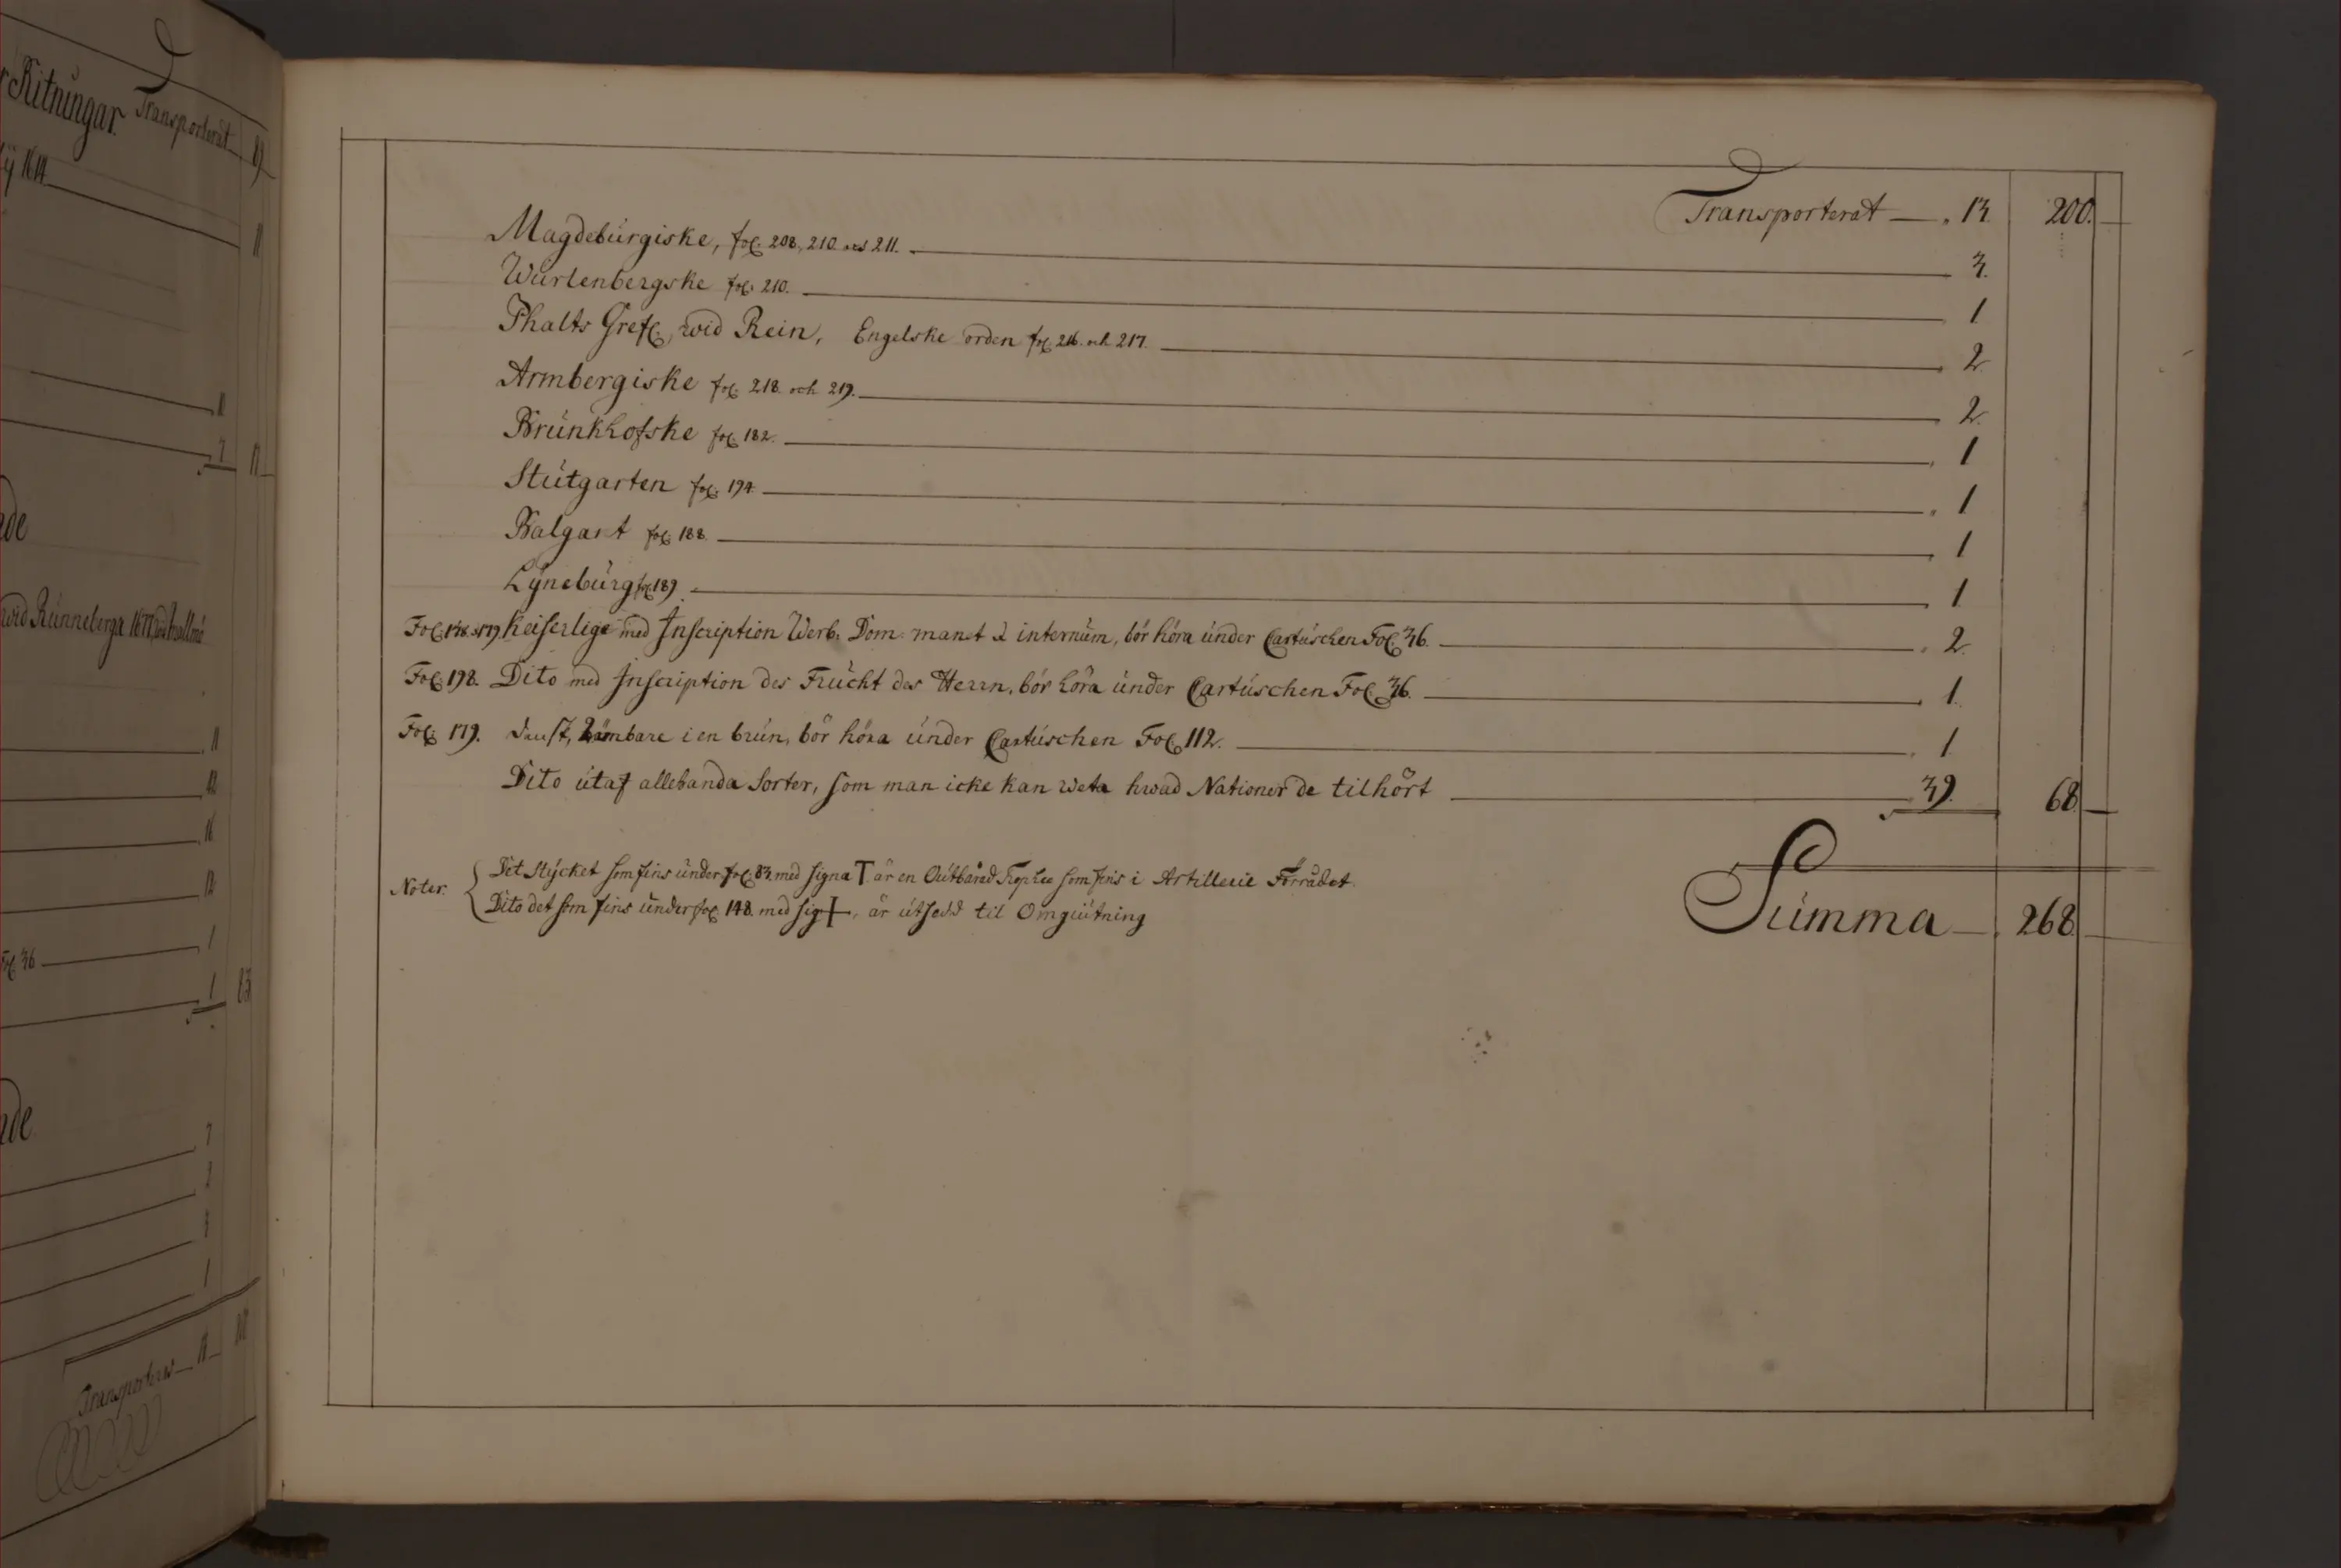 Ritningar. Transporterat
ÿ 1614
wid Runneberga 1677
Transporteras
Transporterat — . 13. 200.
Magdeburgiske, fol. 208, 210 och 211. 3.
Würtenbergske fol. 210. 1
Phalts Gref, wid Rein, Engelske orden fol. 216. och 217. 2.
Armbergiske fol. 218. och 219. 2.
Brunkhofske fol. 182. 1
Stutgarten fol. 194 1
Balgart fol. 188. 1
Lÿneburg fol. 189. 1
Fol. 178. 179 Keiserlige med Inscription Werb. Dom. manet internum, bör höra under Cartuschen Fol. 36. 2.
Fol. 198. Dito med Inscription des Frucht des Herrn, bör höra under Cartuschen Fol. 36. 1.
Fol. 179. Danst, 2 ämbare i en brun, bör höra under Cartuschen Fol. 112. 1
Dito utaf allehanda Sorter, som man icke kan weta hwad Nationer de tilhört 39. 68.
Noter. Det Stÿcket som fins under fol. 83 med signa T. är en Outbÿred Trophee som fins i Artillerie Förrådet.
Dito det som fins under fol. 148. med sig †, är utsedd til Omgiutning
Summa — 268.